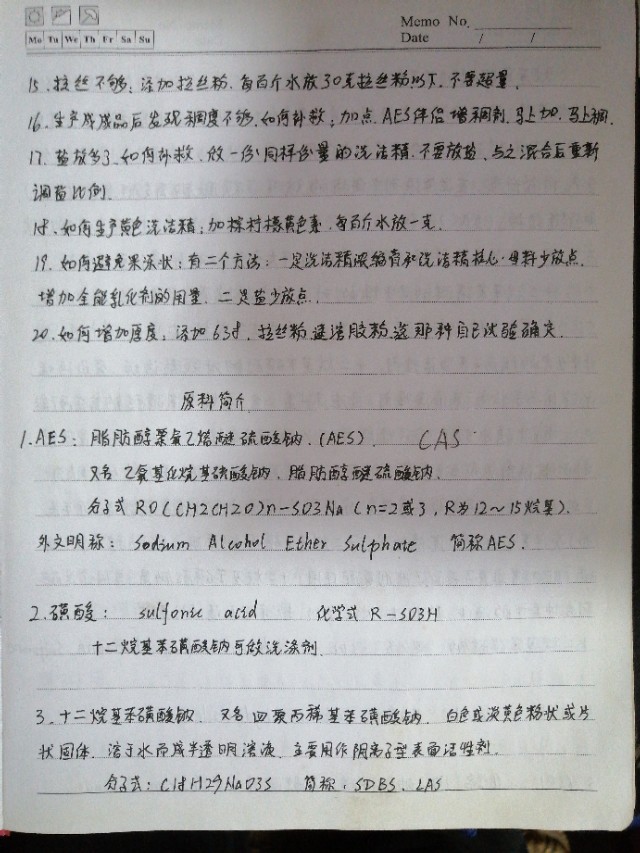 Memo No.
Mo Tu We Th Fr Sa Su
Date / /
15、拉丝不够：添加拉丝粉，每百斤水放30克拉丝粉以下，不要超量，
16、生产成成品后发现稠度不够，如何补救；加点AES伴侣增稠剂，马上加，马上稠，
17、盐放多了，如何补救，做一份同样份量的洗洁精，不要放盐，与之混合后重新
调盐比例，
18、如何生产黄色洗洁精；加棕柠檬黄色素，每百斤水放一克，
19、如何避免果冻状：有二个方法：一是洗洁精浓缩膏和洗洁精核心母料少放点，
增加全能乳化剂的用量，二是盐少放点，
20、如何增加厚度：添加638，拉丝粉，速溶胶粉，选那种自己试验确定，
原料简介
1.AES：脂肪醇聚氧乙烯醚硫酸钠，(AES)， CAS
又名乙氧基化烷基硫酸钠，脂肪醇醚硫酸钠，
分子式 RO(CH2CH2O)n-SO3Na (n=2或3，R为12~15烷基)，
外文明称： Sodium Alcohol Ether Sulphate 简称AES，
2.磺酸： sulfonic acid 化学式 R-SO3H
十二烷基苯磺酸钠可做洗涤剂
3、十二烷基苯磺酸钠，又名四聚丙稀基苯磺酸钠，白色或淡黄色粉状或片
状固体，溶于水而成半透明溶液，主要用作阴离子型表面活性剂，
分子式：C18H29NaO3S 简称：SDBS、LAS